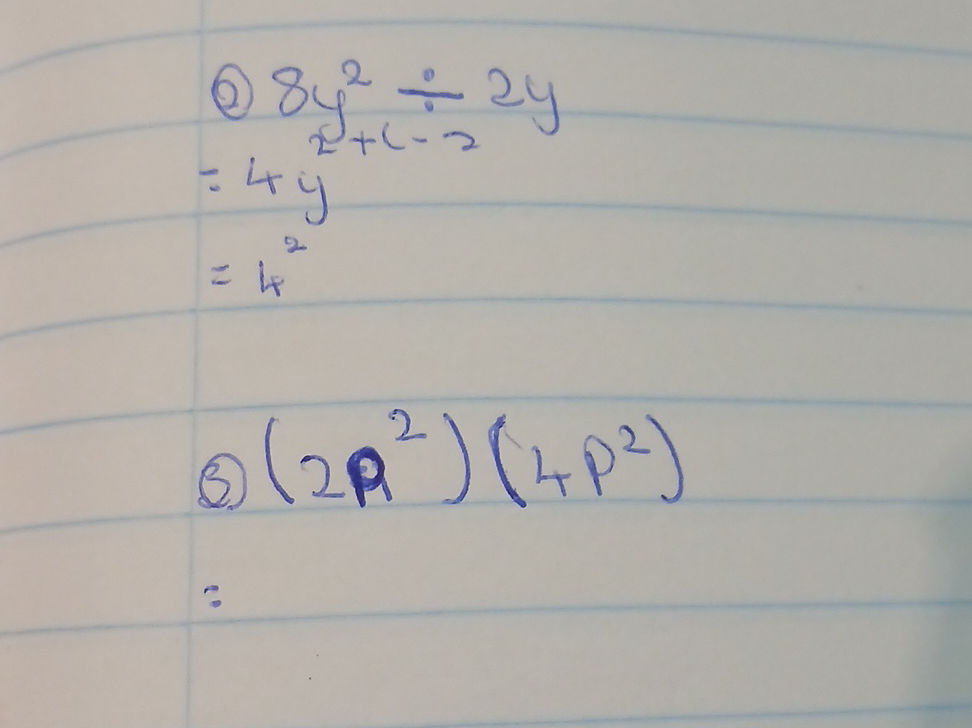 ② 8y² ÷ 2y
2+1-2
= 4y
= 4²
③ (2p²)(4p²)
=